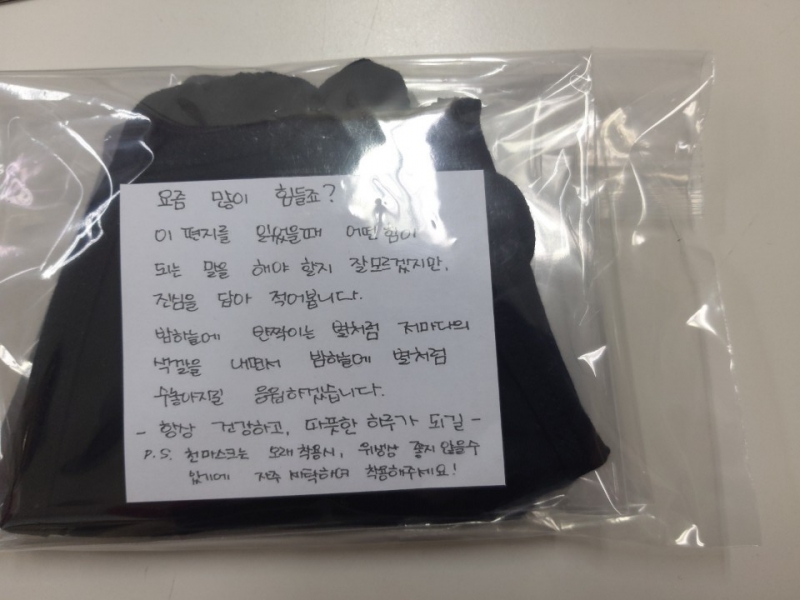 요즘 많이 힘들죠?
이 편지를 읽었을때 어떤 힘이
되는 말을 해야 할지 잘모르겠지만,
진심을 담아 적어봅니다.
밤하늘에 반짝이는 별처럼 저마다의
색깔을 내면서 밤하늘에 별처럼
수놓아지길 응원하겠습니다.
- 항상 건강하고, 따뜻한 하루가 되길 -
P.S. 천마스크는 오래 착용시, 위생상 좋지 않을수
있기에 자주 세탁하여 착용해주세요!